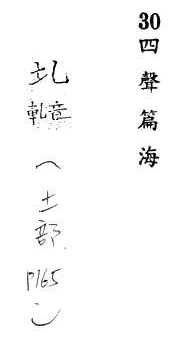 30四聲篇海
圠
軋音
(土部 P165)